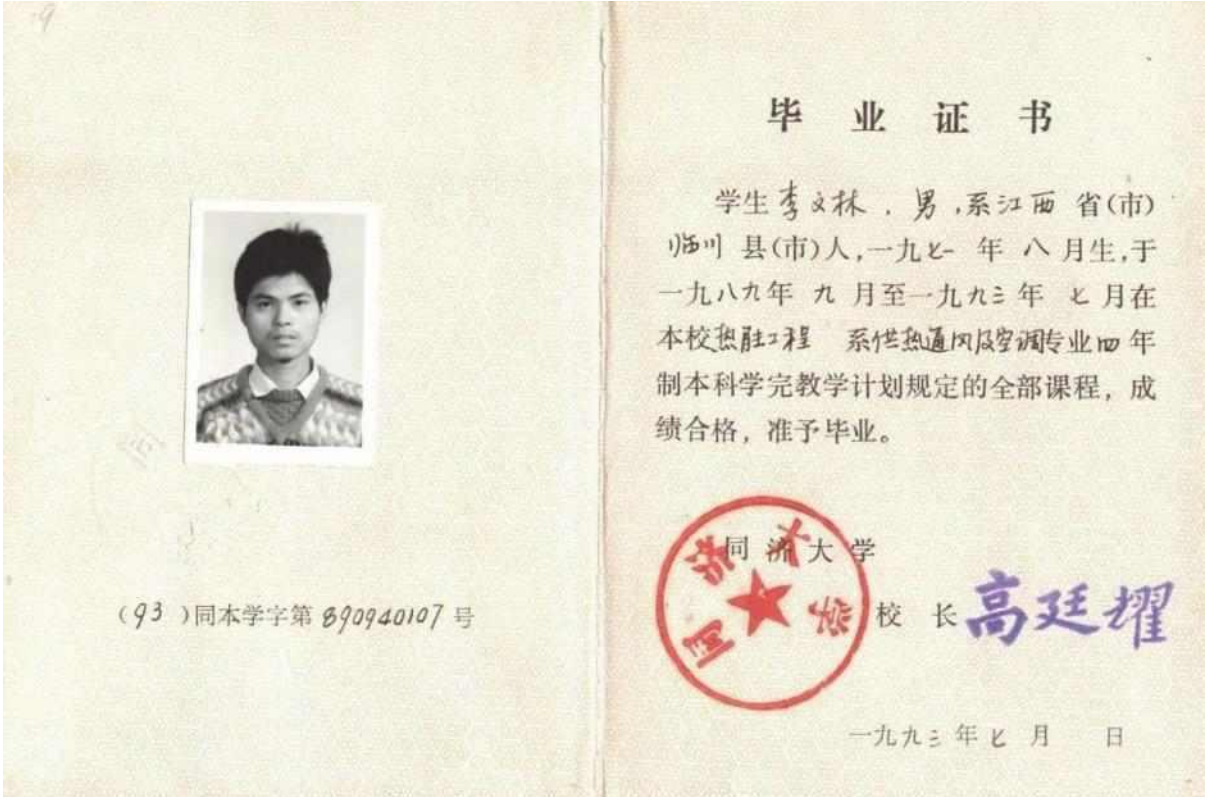 (93)同本学字第890940107号
毕业证书
学生李文林,男,系江西省(市)
临川县(市)人,一九七一年八月生,于
一九八九年九月至一九九三年七月在
本校热能工程 系供热通风及空调专业四年
制本科学完教学计划规定的全部课程,成
绩合格,准予毕业。
同济大学
同济大学
校长 高廷耀
一九九三年七月 日